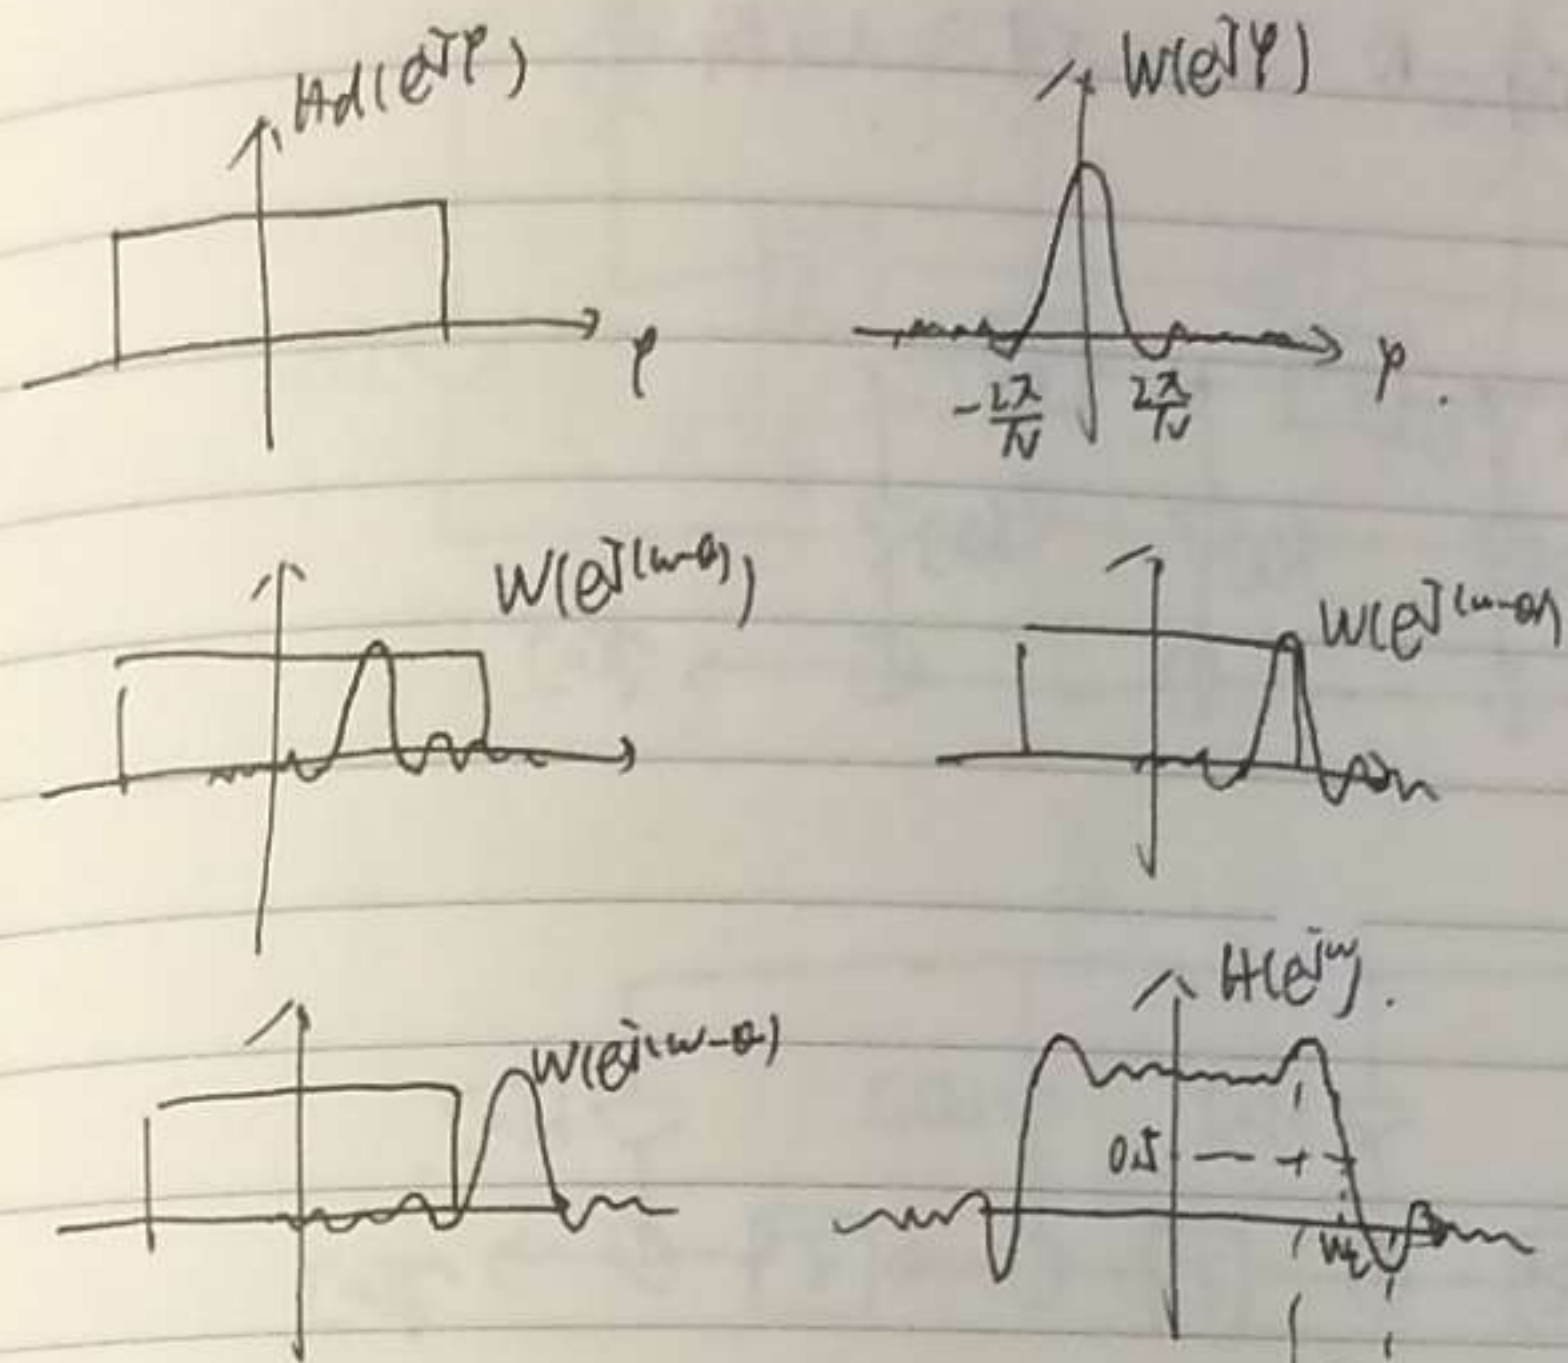 Hd(e^jφ)
W(e^jφ)
φ
-2π/N
2π/N
φ.
W(e^j(ω-θ))
W(e^j(ω-θ))
W(e^j(ω-θ)
H(e^jω).
0.5
ωc